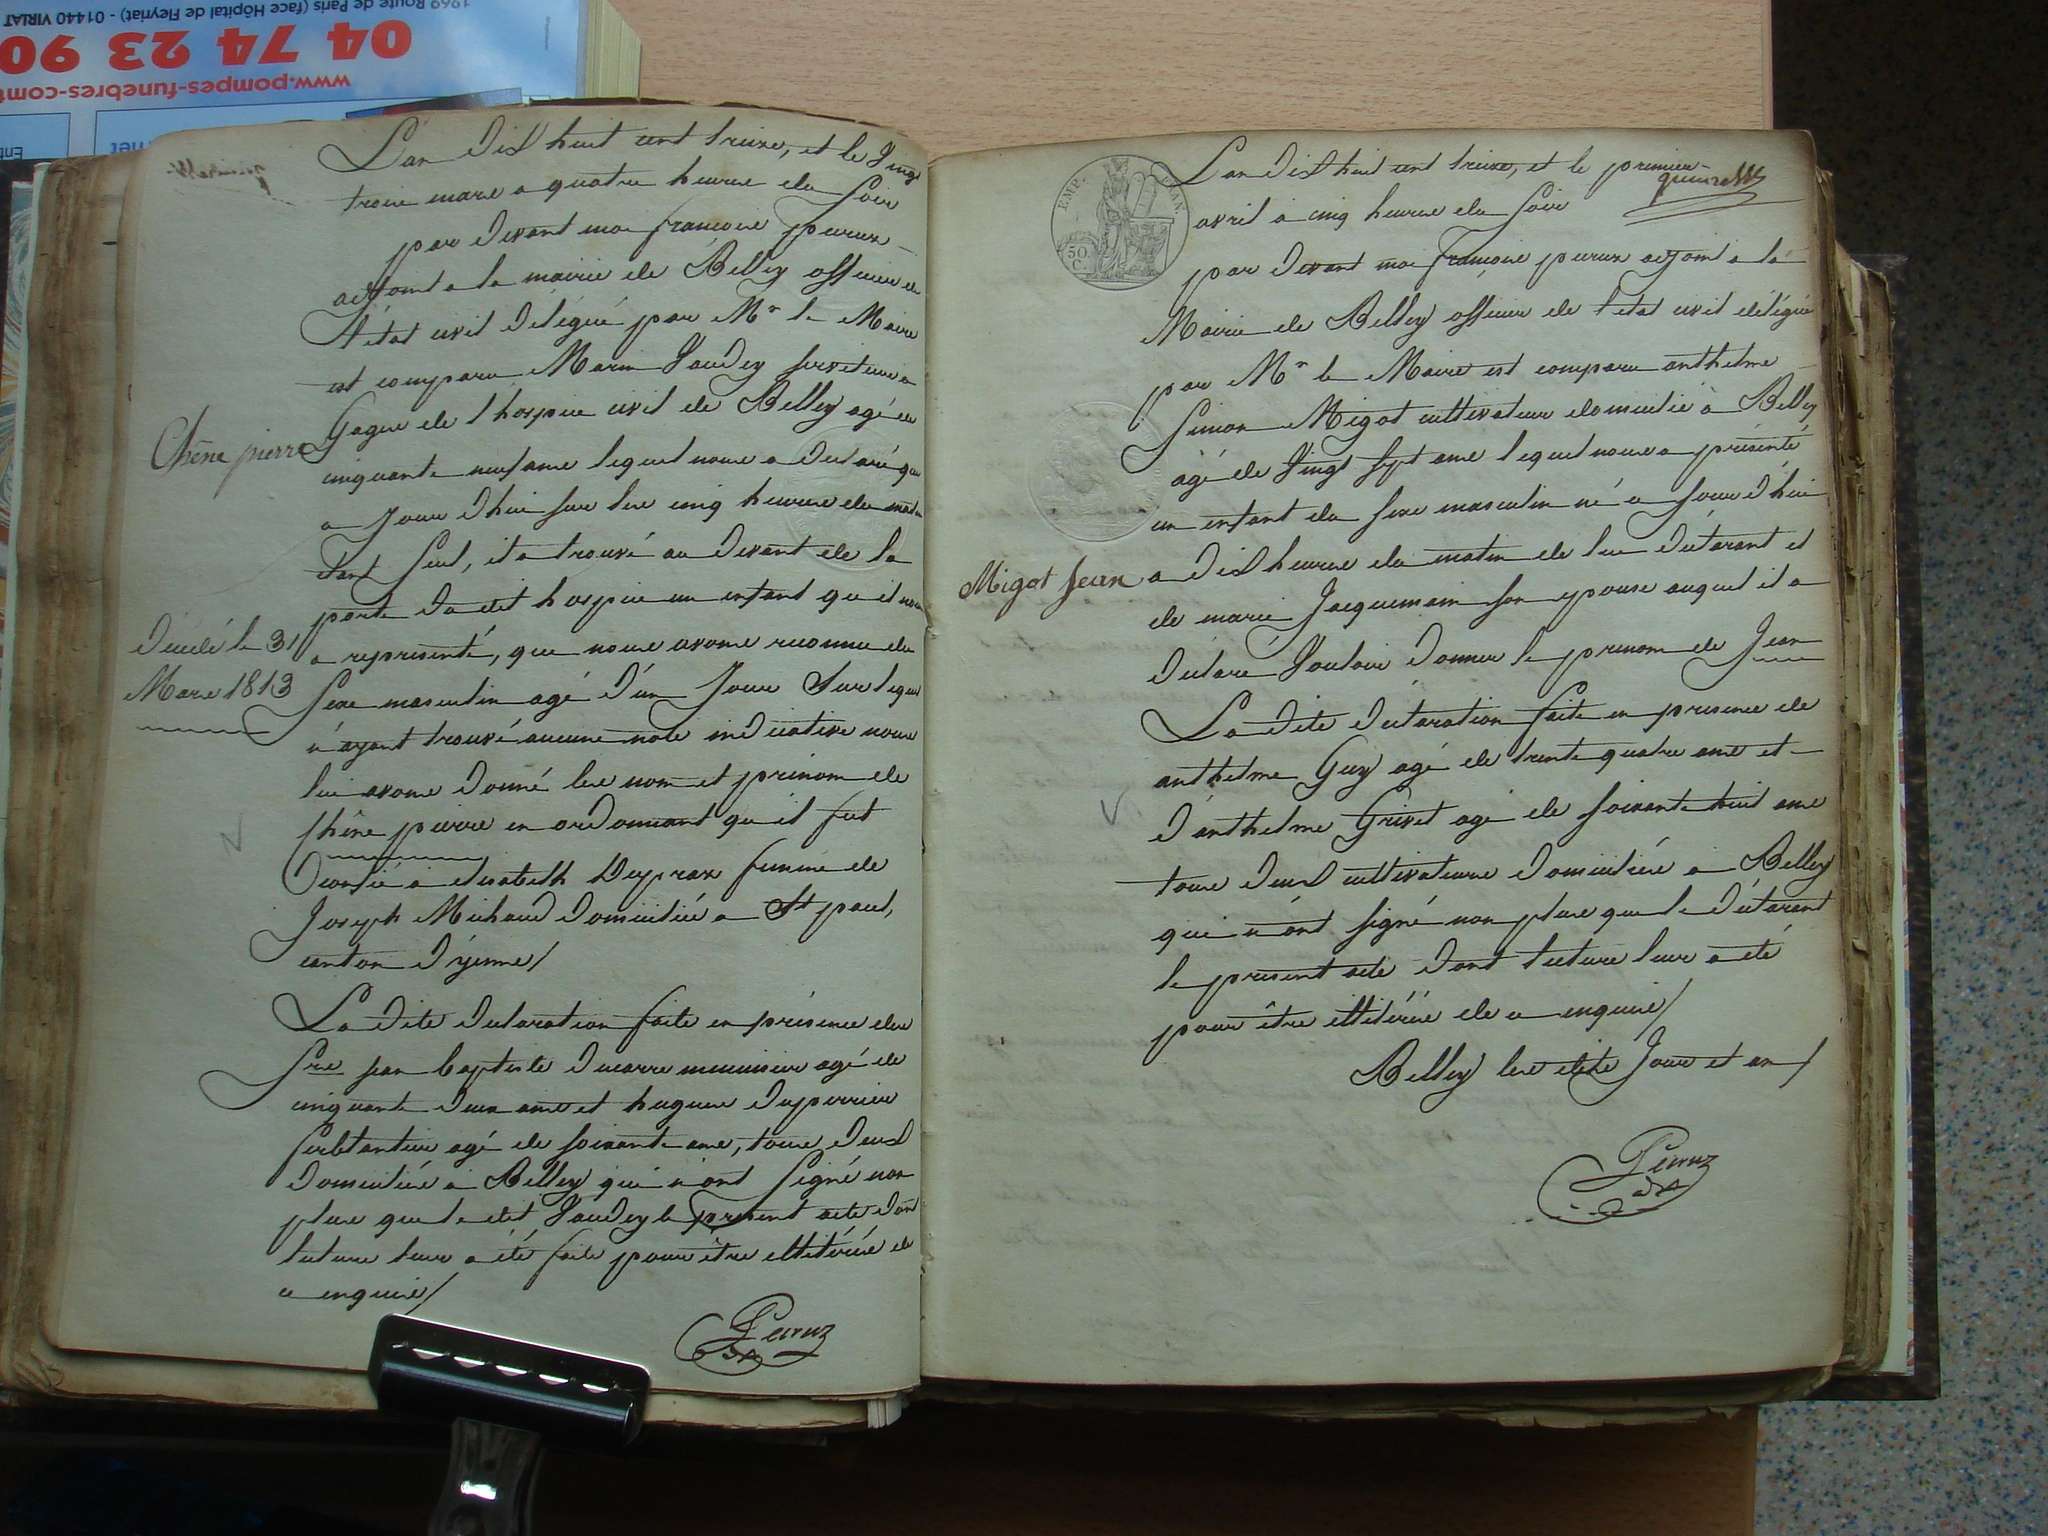 1969 Route de Paris (face Hôpital de Fleyriat) - 01440 VIRIAT
04 74 23 90
www.pompes-funebres-comt
L'an dix huit cent treize, et le vingt
trois mars a quatre heures du soir
par devant moi françois peruz
adjoint a la mairie de Belley officier de
l'état civil délégué par Mr le Maire
est comparu Marin Vaudey serviteur a
Gages de l'hospice civil de Belley agé de
cinquante neuf ans lequel nous a déclaré que
a Jour d'hui sur les cinq heures du matin
étant seul, il a trouvé au devant de la
porte du dit hospice un enfant qu'il nous
a représenté, que nous avons reconnu du
sexe masculin agé d'un Jour Sur lequel
n'ayant trouvé aucune note indicative nous
lui avons donné les nom et prénom de
chêne pierre en ordonnant qu'il fut
confié a elisabeth Duprax femme de
Joseph Michaud Domiciliée a St paul,
canton d'yenne/
La dite declaration faite en présence des
Srs jean baptiste Ducarre menuisier agé de
cinquante deux ans et hugues duperrier
ferblantier agé de soixante ans, tous deux
Domiciliés a Belley qui n'ont signé non
plus que le dit Vaudey le présent acte dont
lecture leur a été faite pour être illitérés de
ce enquis/
Peruz
adjt
Chêne pierre
Décédé le 31
Mars 1813
EMP. FRAN.
50 C.
L'an dix huit cent treize, et le premier
avril à cinq heures du soir
par devant moi françois peruz adjoint a la
Mairie de Belley officier de l'état civil délégué
par Mr le Maire est comparu anthelme
Simion Migot cultivateur domicilié à Belley
agé de vingt sept ans lequel nous a présenté
un enfant du sexe masculin né a Jour d'hui
a dix heures du matin de lui déclarant et
de marie Jacquemain son epouse auquel il a
déclaré vouloir donner le prénom de Jean
La dite declaration faite en présence de
anthelme Guy agé de trente quatre ans et
d'anthelme Grivet agé de soixante huit ans
tous deux cultivateurs Domiciliés a Belley
qui n'ont signé non plus que le déclarant
le présent acte dont lecture leur a été
pour être illitérés de ce enquis/
Belley les dits Jour et an/
Peruz
adjt
Migot Jean